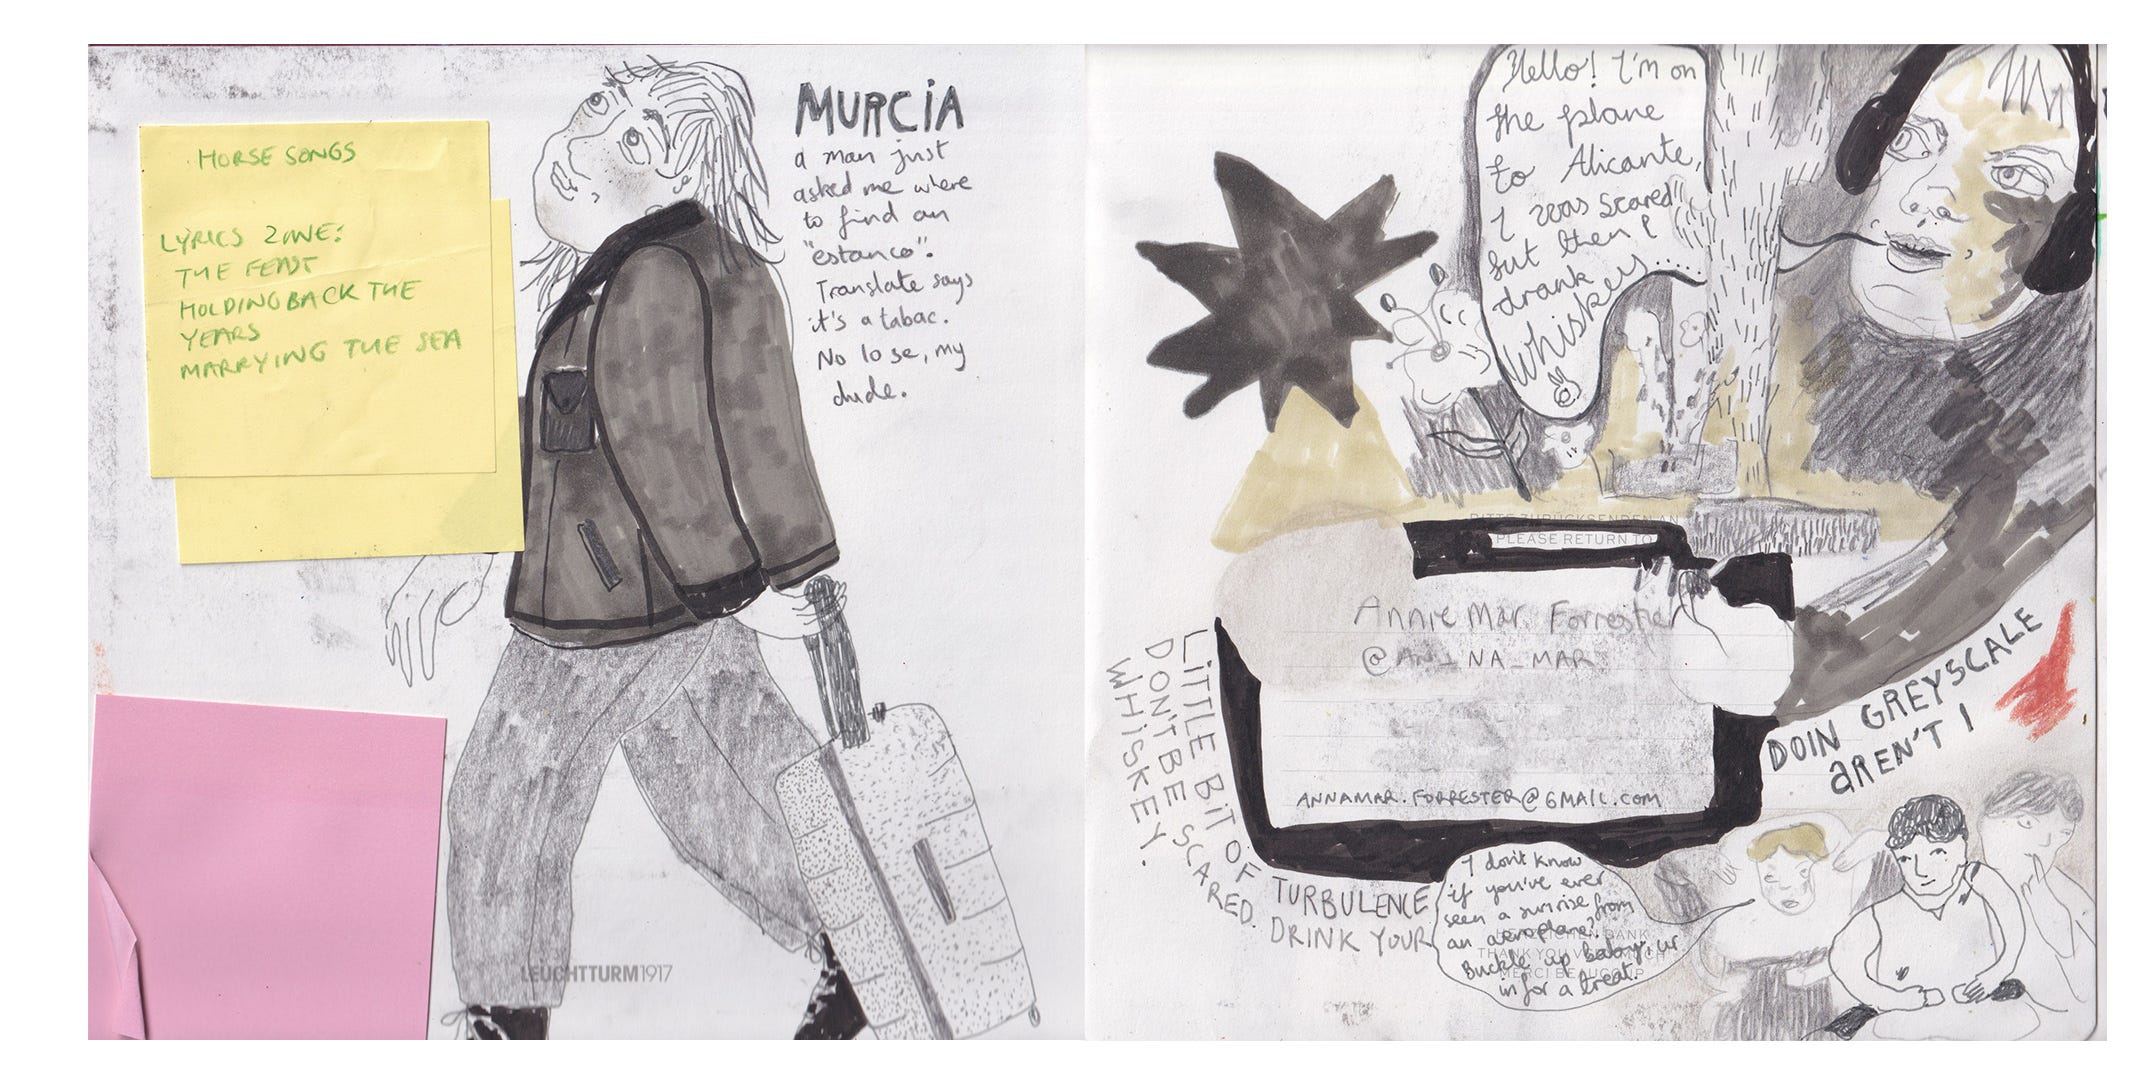 HORSE SONGS
LYRICS ZINE:
THE FEAST
HOLDING BACK THE
YEARS
MARRYING THE SEA
MURCIA
a man just
asked me where
to find an
"estanco".
Translate says
it's a tabac.
No lo se, my
dude.
LEUCHTTURM1917
Hello! I'm on
the plane
to Alicante,
I was scared
but then I
drank
Whiskey.....
BITTE ZURÜCKSENDEN AN
PLEASE RETURN TO
Annie Mar. Forrester
@AN_NA_MAR
ANNAMAR.FORRESTER@GMAIL.COM
DOIN GREYSCALE
AREN'T I
LITTLE BIT OF TURBULENCE
DON'T BE SCARED. DRINK YOUR
WHISKEY.
I don't know
if you've ever
seen a sunrise from
an aeroplane?
Buckle up baby, ur
in for a treat.
DANK
THANK YOU VERY MUCH
MERCI BEAUCOUP